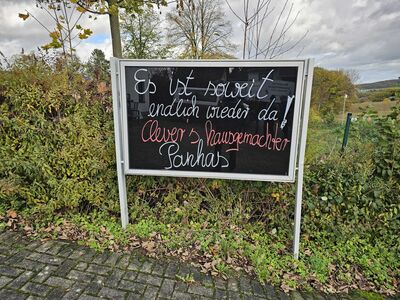 Es ist soweit
endlich wieder da!
Clever's hausgemachter
Panhas